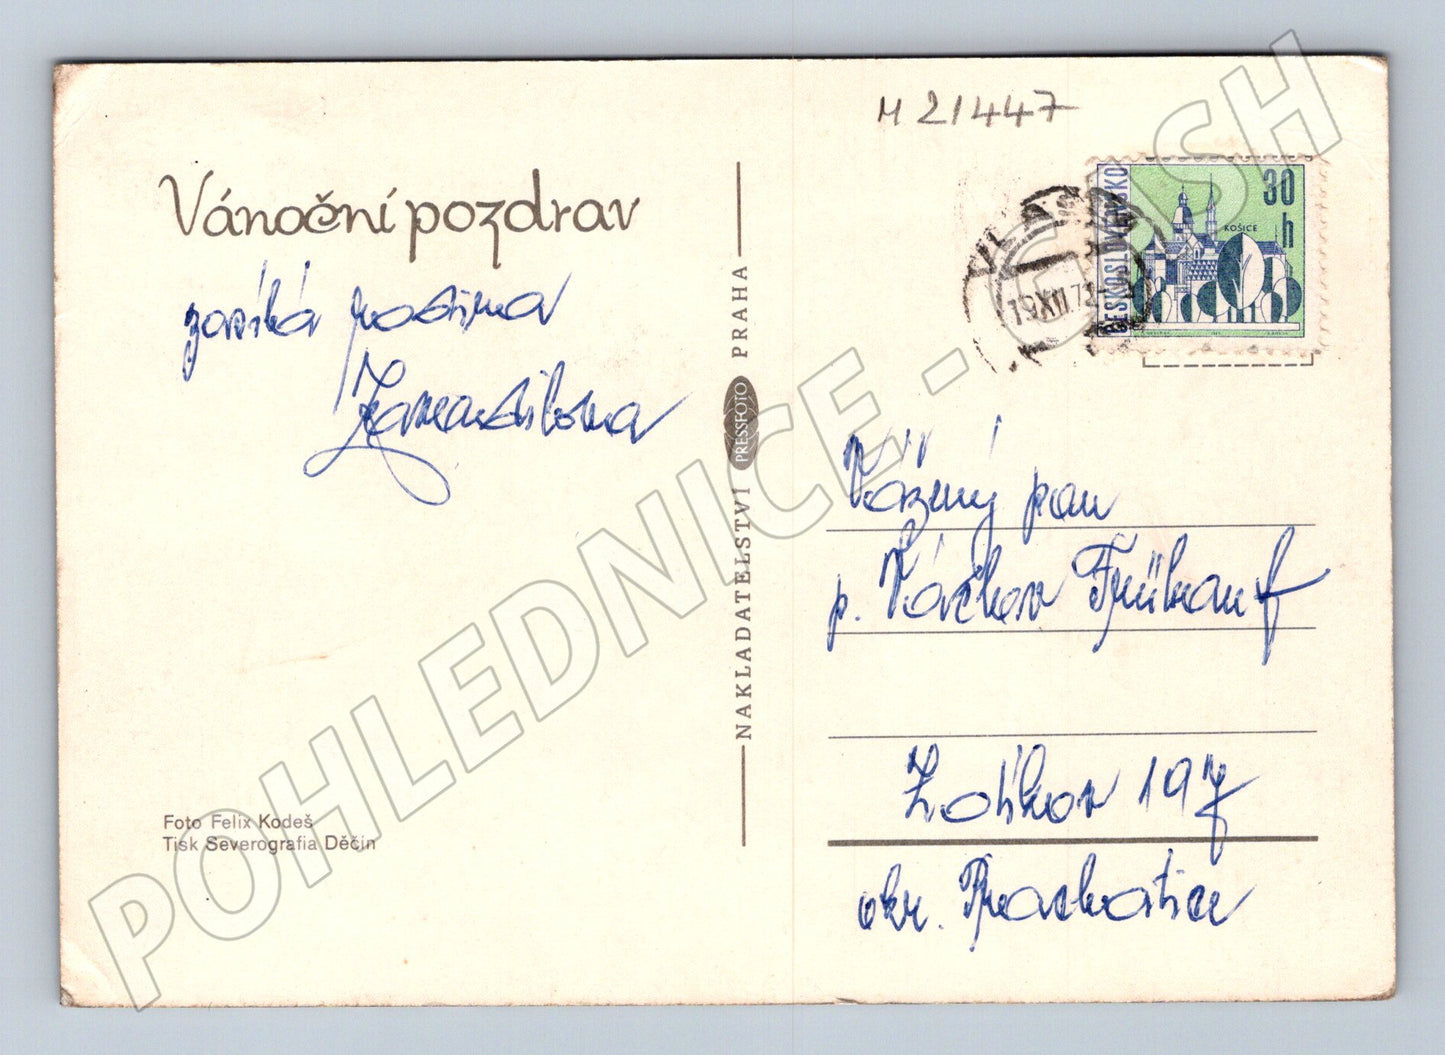 M 21447
Vánoční pozdrav
zasílá rodina
ČESKOSLOVENSKO
30 h
KOŠICE
19.XII.73
NAKLADATELSTVÍ PRESSFOTO PRAHA
Vážený pan
p. Václav Frühauf
Zdíkov 197
okr. Prachatice
Foto Felix Kodeš
Tisk Severografia Děčín
POHLEDNICE - CASH